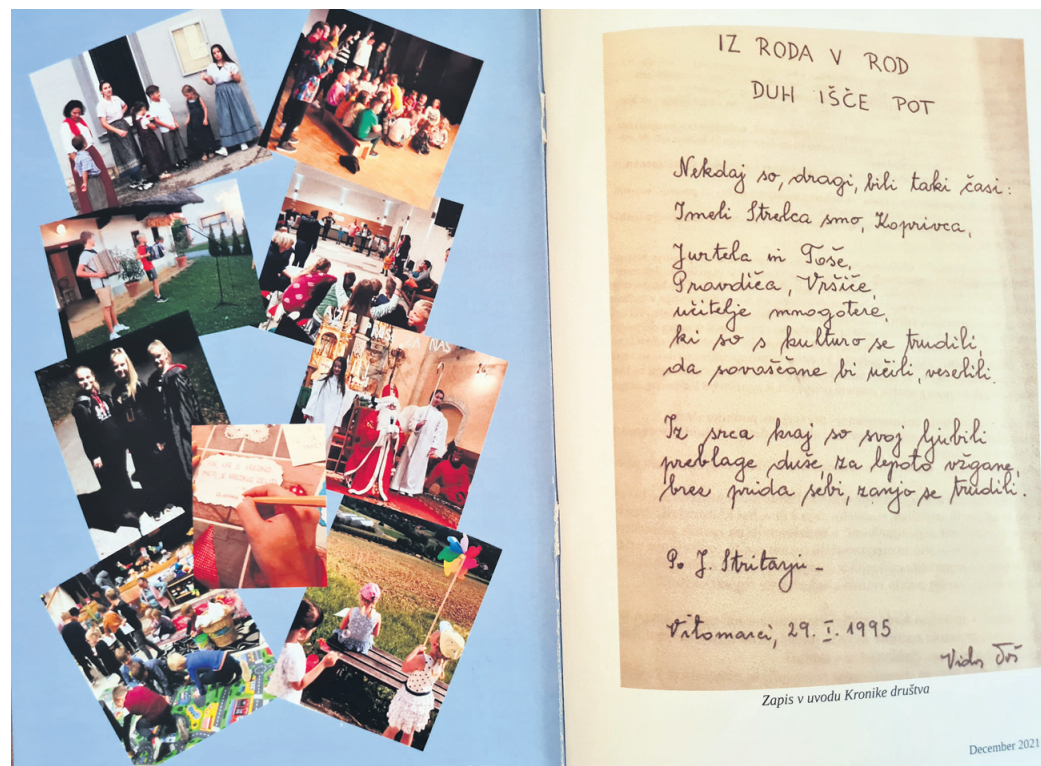 NAS
NAS
IZ RODA V ROD
DUH IŠČE POT
Nekdaj so, dragi, bili taki časi:
Imeli Strelca smo, Koprivca,
Jurtela in Toše,
Pravdiča, Vršiče,
učitelje mnogotere,
ki so s kulturo se trudili,
da sovaščane bi učili, veselili.
Iz srca kraj so svoj ljubili
preblage duše, za lepoto vžgane,
brez prida sebi, zanjo se trudili.
Po J. Stritarju -
Vitomarci, 29. I. 1995
Vida Toš
Zapis v uvodu Kronike društva
December 2021